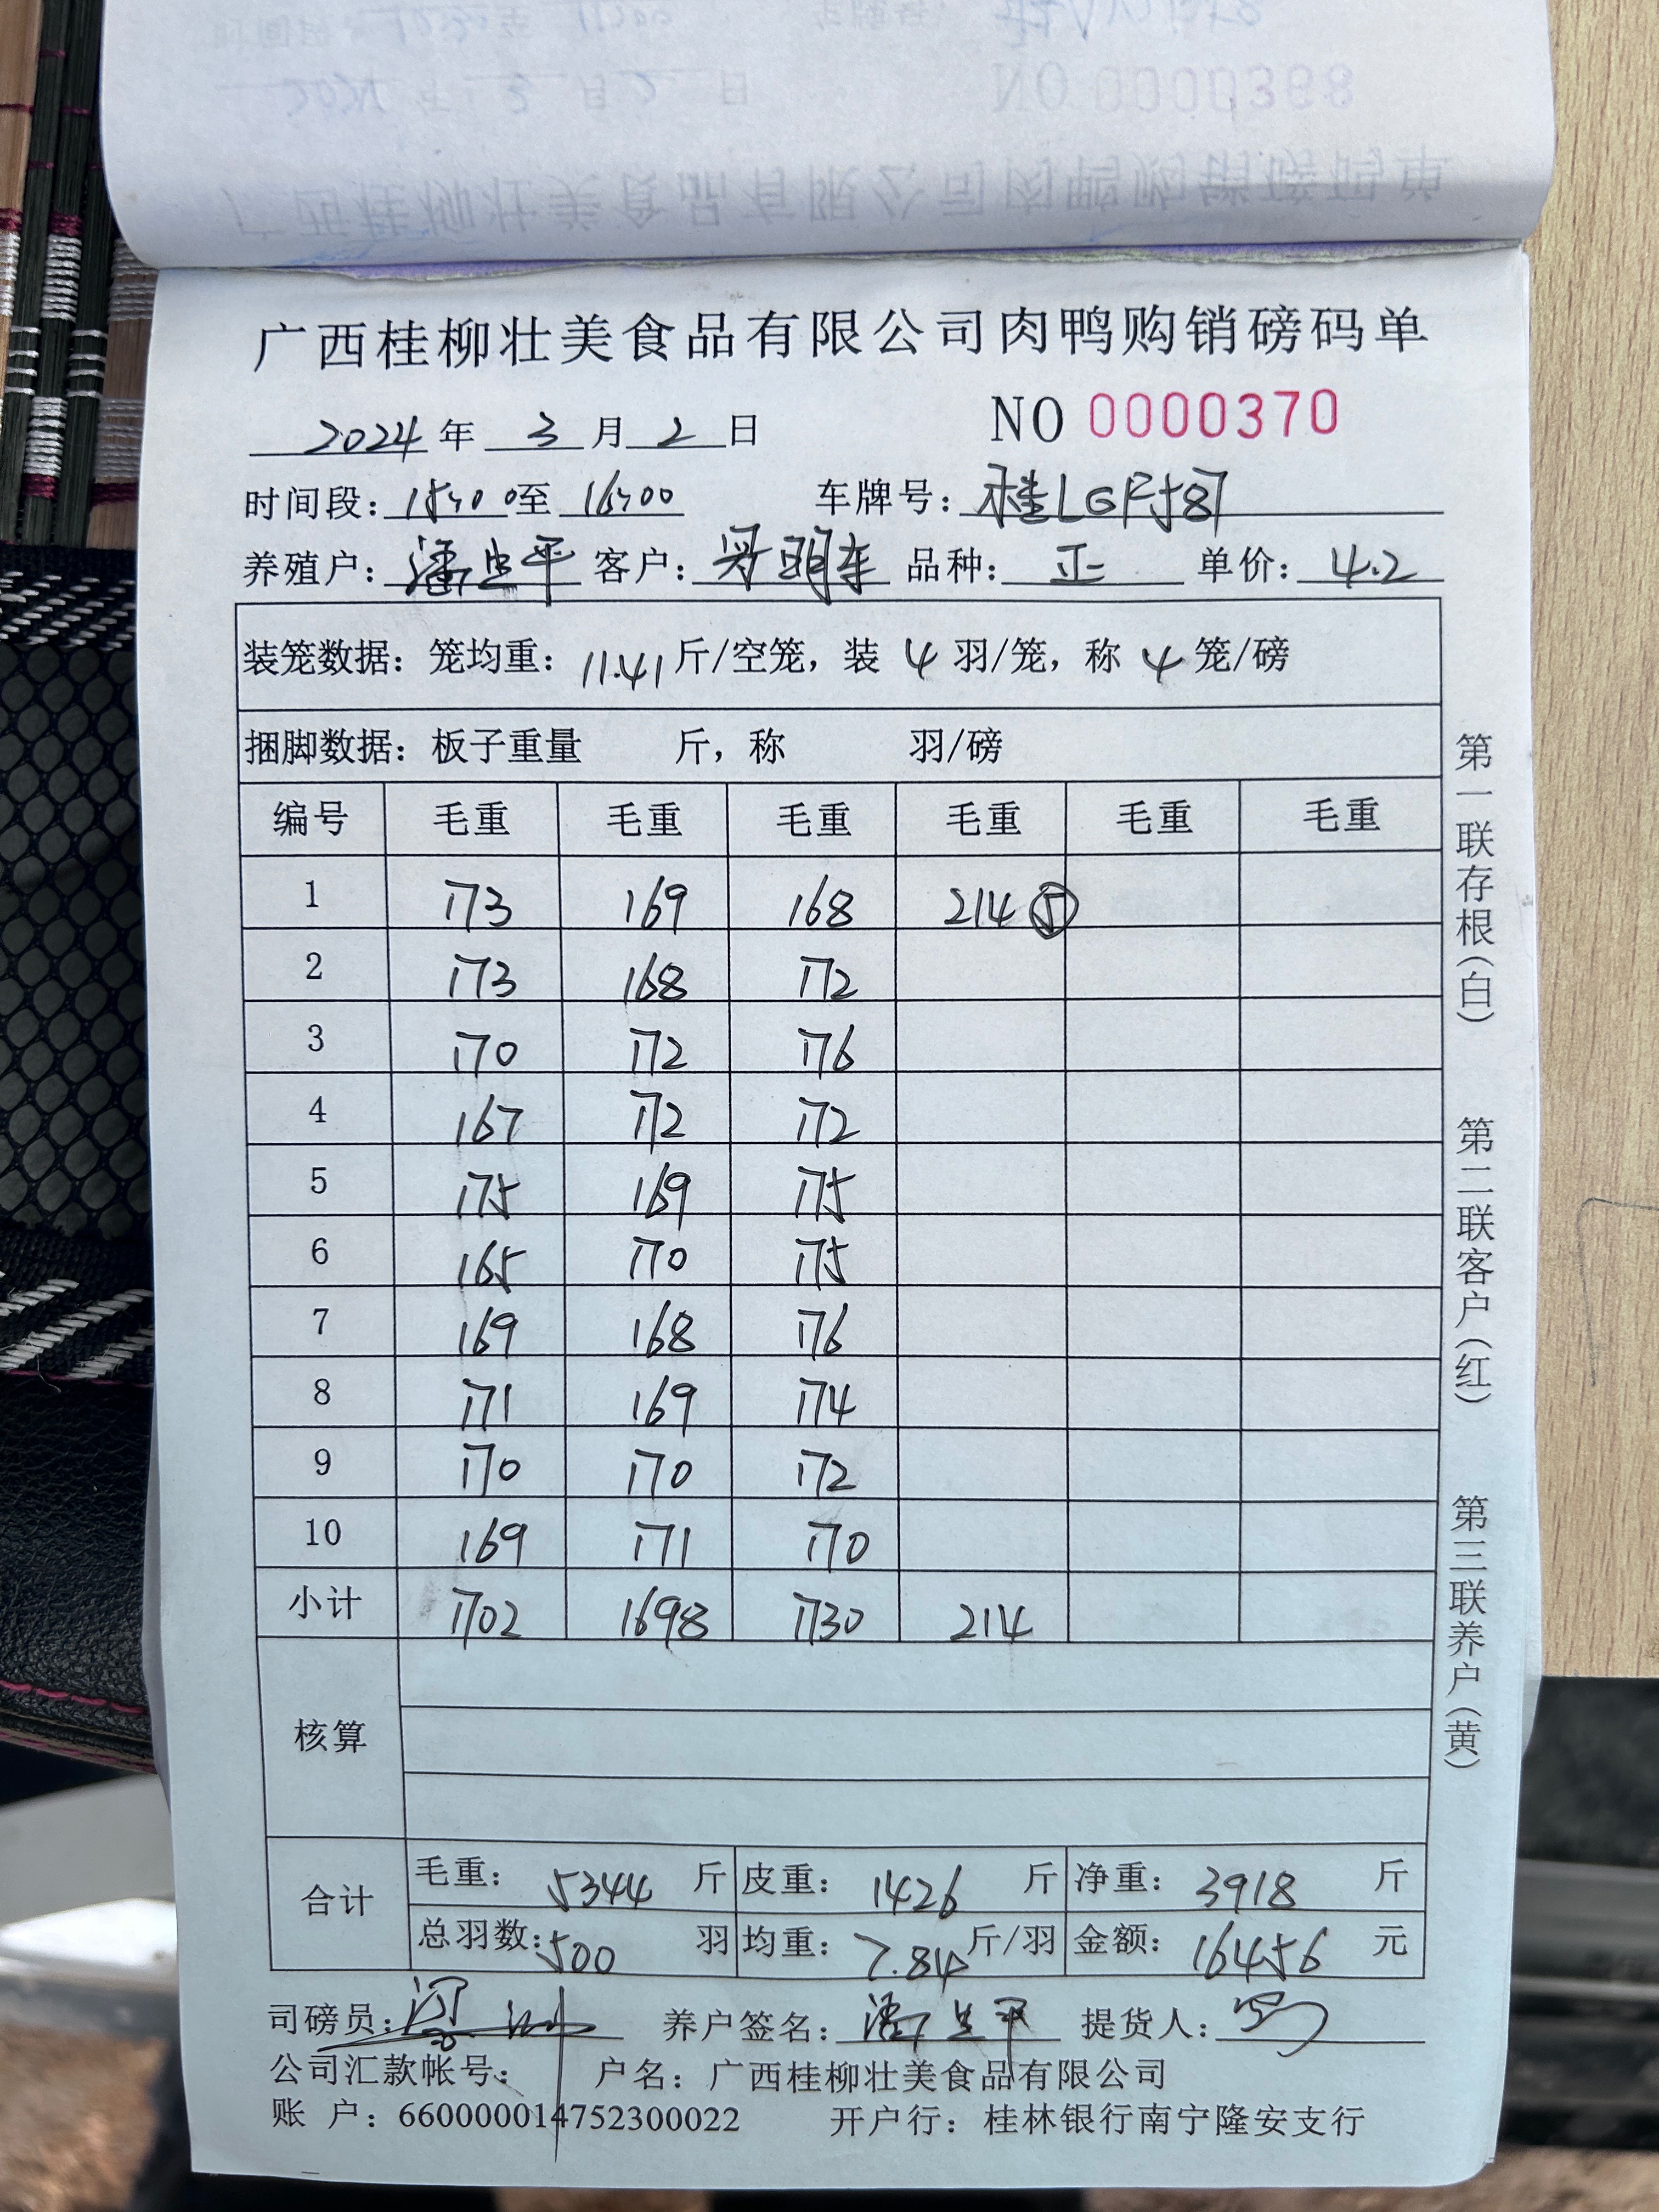 广西桂柳壮美食品有限公司肉鸭购销磅码单
2024年 3月2日 NO 0000370
时间段：15:00至16:00 车牌号：桂LGF587
养殖户：潘 平 客户： 明 品种：正 单价：4.2
装笼数据：笼均重：11.41斤/空笼，装4羽/笼，称4笼/磅
捆脚数据：板子重量 斤，称 羽/磅
编号 毛重 毛重 毛重 毛重 毛重 毛重
1 173 169 168 214 ⑤
2 173 168 172
3 170 172 176
4 167 172 172
5 175 169 175
6 165 170 175
7 169 168 176
8 171 169 174
9 170 170 172
10 169 171 170
小计 1702 1698 1730 214
核算
合计 毛重：5344斤 皮重：1426斤 净重：3918斤
总羽数：500羽 均重：7.84斤/羽 金额：16456元
司磅员： 养户签名：潘 平 提货人：
公司汇款帐号： 户名：广西桂柳壮美食品有限公司
账 户：660000014752300022 开户行：桂林银行南宁隆安支行
第一联存根（白） 第二联客户（红） 第三联养户（黄）